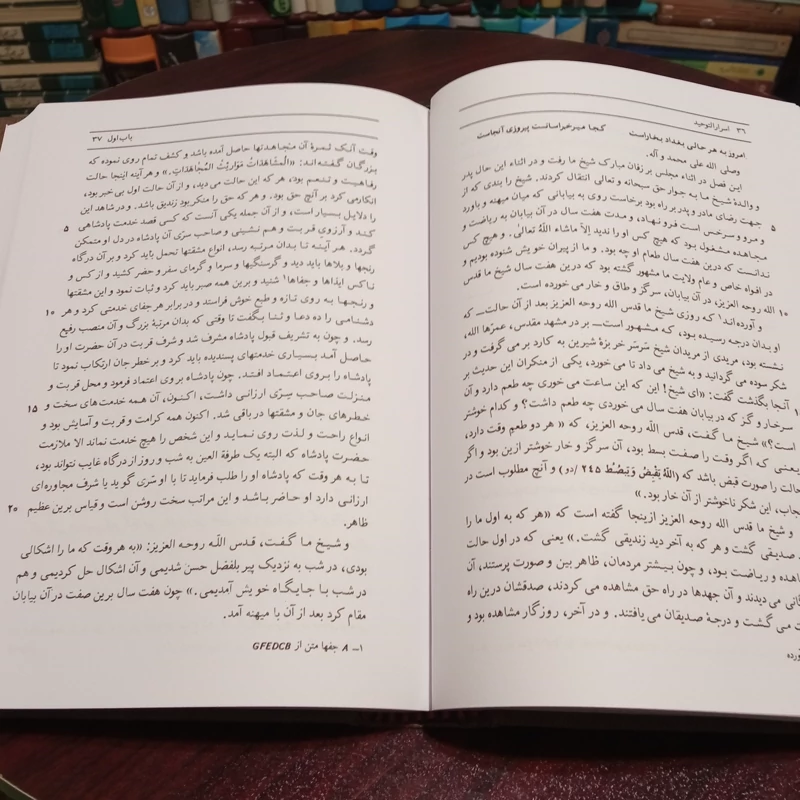 ۳۶ اسرارالتوحید
امروز به هر حالی بغداد بخاراست کجا میر خراسانست پیروزی آنجاست
وصلی الله علی محمد و آله.
این فصل در اثناء مجلس بر زفان مبارک شیخ ما رفت و در اثناء این حال پدر
و والدۀ شیخ ما به جوار حق سبحانه و تعالی انتقال کردند. شیخ را بندی که از
جهت رضای مادر و پدر بر راه بود برخاست روی به بیابانی که میان میهنه و باورد
۵ و مرو و سرخس است فرو نهاد، و مدت هفت سال در آن بیابان به ریاضت و
مجاهده مشغول بود که هیچ کس او را ندید إلاّ ماشاء اللهُ تعالیٰ. و هیچ کس
ندانست که درین هفت سال طعام او چه بود. و ما از پیران خویش شنوده بودیم و
در افواه خاص و عام ولایت ما مشهور گشته بود که درین هفت سال شیخ ما قدس
الله روحه العزیز، در آن بیابان، سرگز و طاق و خار می خورده است.
۱۰ و آورده‌اند۱ که روزی شیخ ما قدس الله روحه العزیز بعد از آن حالت ـ که
او بدان درجه رسیده بود، که مشهور است ـ بر در مشهد مقدس، عمرّها الله،
نشسته بود، مریدی از مریدان شیخ سَرسَرِ خربزۀ شیرین به کارد بر می گرفت و در
شکر سوده می گردانید و به شیخ می داد تا می خورد، یکی از منکران این حدیث بر
آنجا بگذشت گفت: «ای شیخ! این که این ساعت می خوری چه طعم دارد و آن
سرخار و گز که در بیابان هفت سال می خوردی چه طعم داشت؟ و کدام خوشتر
است؟» شیخ ما گفت، قدس اللّه روحه العزیز، که «هر دو طعم وقت دارد،
یعنی که اگر وقت را صفت بسط بود، آن سرگز و خار خوشتر ازین بود و اگر
حالت را صورت قبض باشد که (اللّهُ یَقْبِضُ وَیَبْصُطُ ۲۴۵ /دو) و آنچ مطلوب است در
حجاب، این شکر ناخوشتر از آن خار بود.»
و شیخ ما قدس الله روحه العزیز ازینجا گفته است که «هر که به اول ما را
دید صدیقی گشت و هر که به آخر دید زندیقی گشت.» یعنی که در اول حالت
مجاهده و ریاضت بود، و چون بیشتر مردمان، ظاهر بین و صورت پرستند، آن
زندگانی می دیدند و آن جهدها در راه حق مشاهده می کردند، صدقشان درین راه
می گشت و درجۀ صدیقان می یافتند. و در آخر، روزگار مشاهده بود و
باب اول ۳۷
وقت آنک ثمرۀ آن مجاهدتها حاصل آمده باشد و کشف تمام روی نموده که
بزرگان گفته‌اند: «الْمشاهَداتُ مَوَاریثُ المُجاهَداتِ.» و هر آینه اینجا حالت
رفاهیت و تنعم بود، هر که این حالت می دید، و از آن حالت اول بی خبر بود،
انکار می کرد بر آنچ حق بود. و هر که حق را منکر بود زندیق باشد. و در شاهد این
را دلایل بسیار است، و از آن جمله یکی آنست که کسی قصد خدمت پادشاهی
۵ کند و آرزوی قربت و هم نشینی و صاحب سرّی آن پادشاه در دل او متمکن
گردد. هر آینه تا بدان مرتبه رسد، انواع مشقتها تحمل باید کرد و بر آن درگاه
رنجها و بلاها باید دید و گرسنگیها و سرما و گرمای سفر و حضر کشید و از کس و
ناکس ایذاها و جفاها۱ شنید و برین همه صبر باید کرد و ثبات نمود و این مشقتها
و رنجها به روی تازه و طبع خوش فراستد و در برابر هر جفای خدمتی کرد و هر ۱۰
دشنامی را ده دعا و ثنا بگفت تا وقتی که بدان مرتبۀ بزرگ و آن منصب رفیع
رسد. و چون به تشریف قبول پادشاه مشرف شد و شرف قربت در آن حضرت او را
حاصل آمد بسیاری خدمتهای پسندیده باید کرد و بر خطر جان ارتکاب نمود تا
پادشاه را بروی اعتماد افتد. چون پادشاه بر وی اعتماد فرمود و محل قربت و
منزلت صاحب سرّی ارزانی داشت، اکنون، آن همه خدمت‌های سخت و
خطرهای جان و مشقتها در باقی شد. اکنون همه کرامت و قربت و آسایش بود و ۱۵
انواع راحت و لذت روی نماید و این شخص را هیچ خدمت نماند الا ملازمت
حضرت پادشاه که البته یک طرفة العین به شب و روز از درگاه غایب نتواند بود،
تا به هر وقت که پادشاه او را طلب فرماید تا با او سّری گوید یا شرف مجاوره‌ای
ارزانی دارد او حاضر باشد و این مراتب سخت روشن است و قیاس برین عظیم ۲۰
ظاهر.
و شیخ ما گفت، قدس اللّه روحه العزیز: «به هر وقت که ما را اشکالی
بودی، در شب به نزدیک پیر بلفضل حسن شدیمی و آن اشکال حل کردیمی و هم
در شب با جایگاه خویش آمدیمی.» چون هفت سال برین صفت در آن بیابان
مقام کرد بعد از آن با میهنه آمد.
۱ـ ۸ جفها متن از GFEDCB